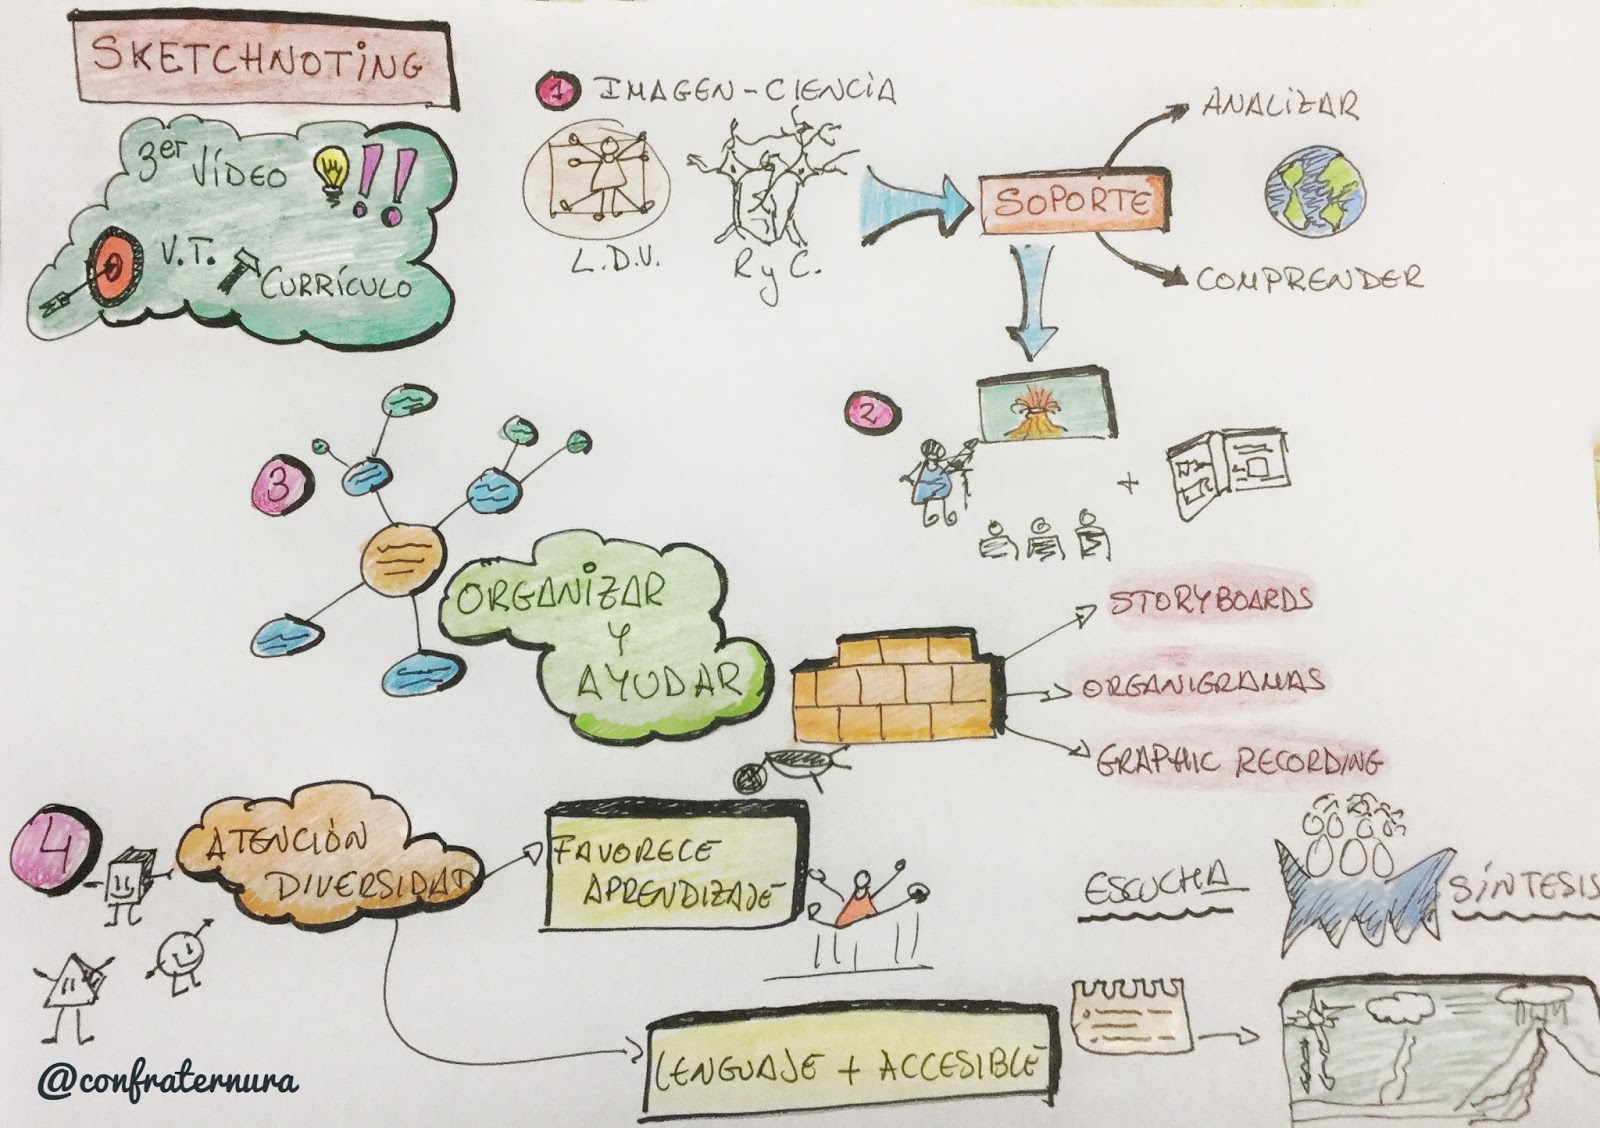 SKETCHNOTING
3er VÍDEO
V.T.
CURRÍCULO
1 IMAGEN-CIENCIA
L.D.V.
R y C.
SOPORTE
ANALIZAR
COMPRENDER
2
+
3
ORGANIZAR
Y
AYUDAR
STORYBOARDS
ORGANIGRAMAS
GRAPHIC RECORDING
4
ATENCIÓN
DIVERSIDAD
FAVORECE
APRENDIZAJE
ESCUCHA
SÍNTESIS
LENGUAJE + ACCESIBLE
@confraternura